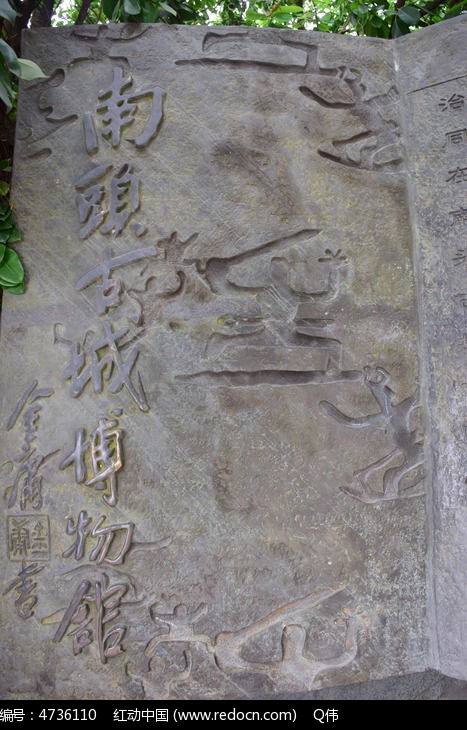 南頭古城博物館
金庸
書
治同在南头古
编号：4736110 红动中国 (www.redocn.com) Q伟